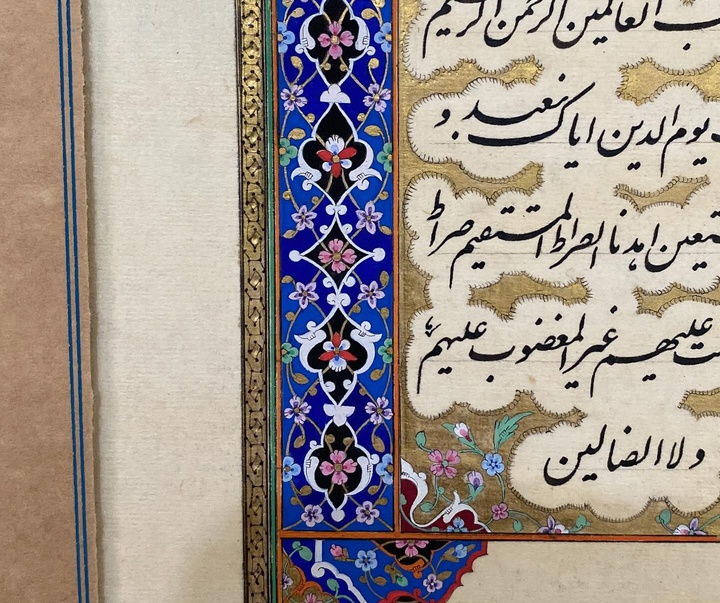 العالمین الرحمن الرحیم
یوم الدین ایاک نعبد و
اهدنا الصراط المستقیم صراط
علیهم غیر المغضوب علیهم
ولا الضالین